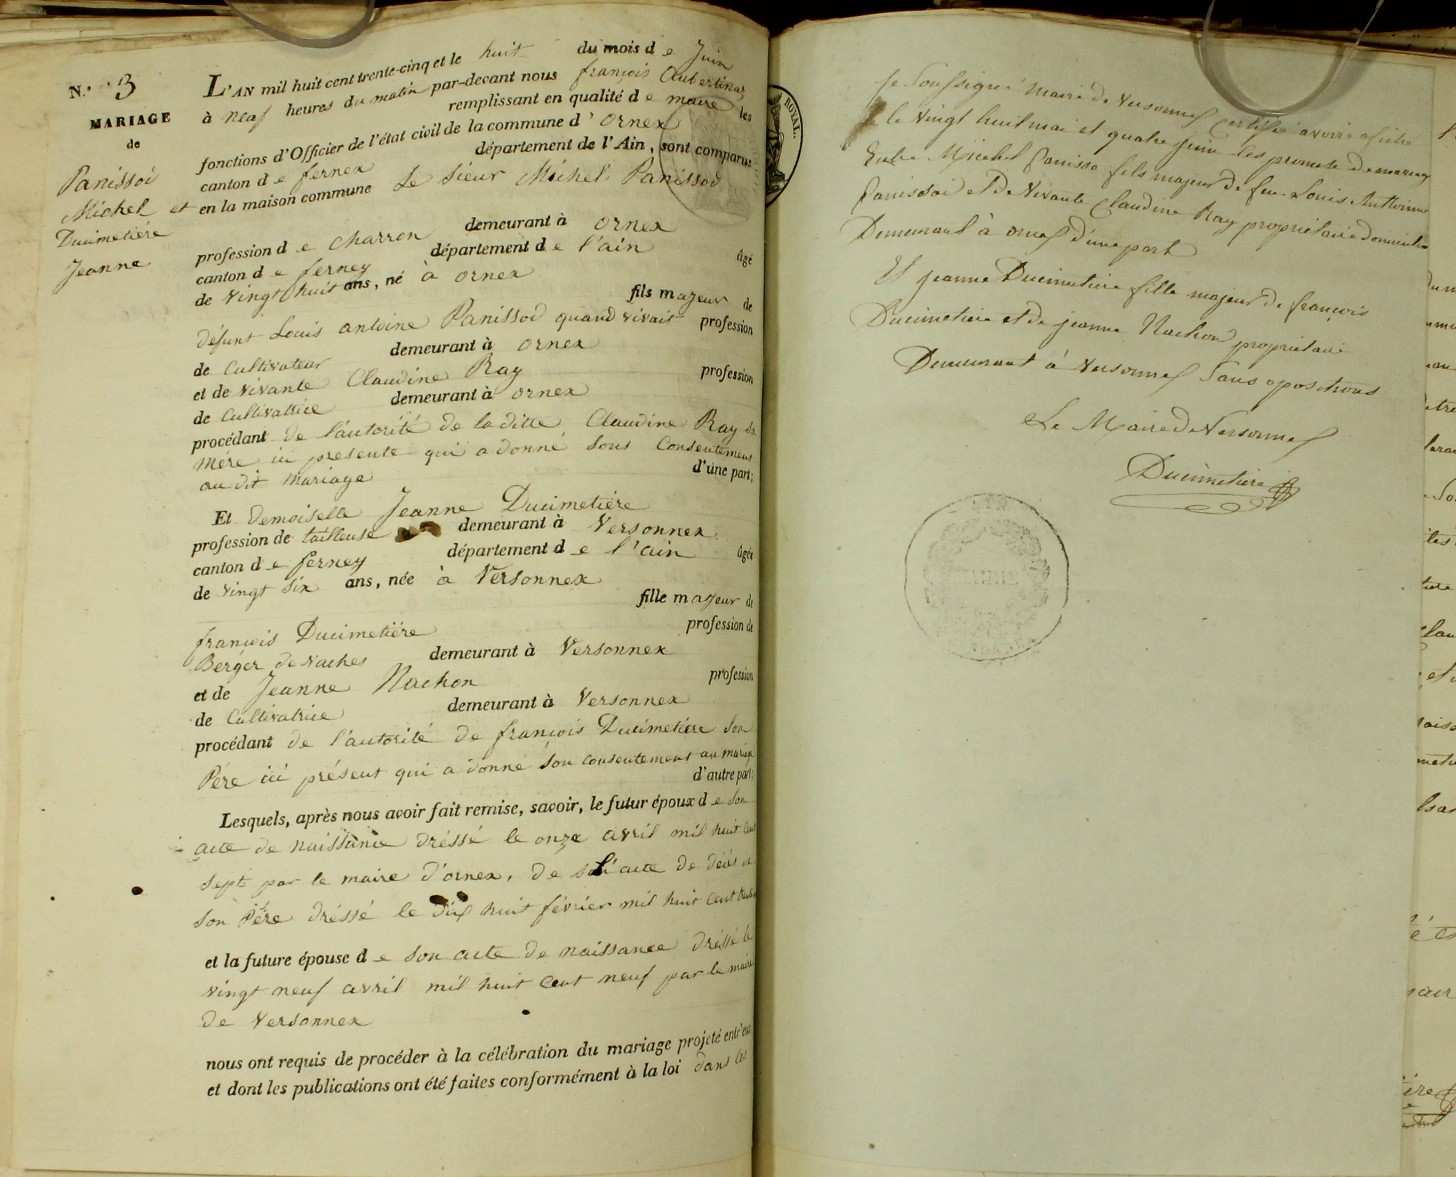 N.° 3
MARIAGE
de
Panissod
Michel et
Ducimetiére
Jeanne
L'AN mil huit cent trente-cinq et le huit du mois d e Juin
à neuf heures du matin par-devant nous françois Aubertin
remplissant en qualité d e maire les
fonctions d'Officier de l'état civil de la commune d' Ornex
canton d e ferney département de l'Ain, sont comparus
en la maison commune Le Sieur Michel Panissod
profession d e charron demeurant à ornex
canton d e ferney département d e l'ain âgé
de vingt huit ans, né à ornex
fils majeur de
défunt Louis antoine Panissod quand vivait profession
de Cultivateur demeurant à ornex
et de vivante Claudine Ray profession
de Cultivatrice demeurant à ornex
procédant de l'autorité de la ditte Claudine Ray sa
mére ici presente qui a donné sous Consentement
au dit mariage d'une part;
Et demoiselle Jeanne Ducimetiére
profession de tailleuse demeurant à Versonnex
canton d e ferney département d e l'ain âgée
de vingt six ans, née à Versonnex
fille majeur de
françois Ducimetiére profession de
Berger de vaches demeurant à Versonnex
et de Jeanne Nachon profession
de Cultivatrice demeurant à Versonnex
procédant de l'autorité de françois Ducimetiére son
Pére ici présent qui a donné son consentement au mariage
d'autre part;
Lesquels, après nous avoir fait remise, savoir, le futur époux d e son
acte de naissance dréssé le onze avril mil huit cent
sept par le maire d'ornex, de l'acte de décés de
son Pére dréssé le dix huit février mil huit cent
et la future épouse d e son acte de naissance dréssé le
vingt neuf avril mil huit cent neuf par le maire
de Versonnex
nous ont requis de procéder à la célébration du mariage projeté entr'eux
et dont les publications ont été faites conformément à la loi dans les
ROYAL.
Je Soussigné Maire de Versonnex certifie avoir afiché
le vingt huit mai et quatre juin les promesse de mariage
Entre Michel Panisso fils majeur de feu Louis Anthoine
Panissoi et De Vivante Claudine Ray propriétaire domicilié
Demeurant à ornex d'une part
Et jeanne Ducimetiere fille majeur de françois
Ducimetiere et de jeanne Nachon propriétaire
Demeurant à Versonnex Sans oposítions
Le Maire de Versonnex
Ducimetiere
MAIRIE